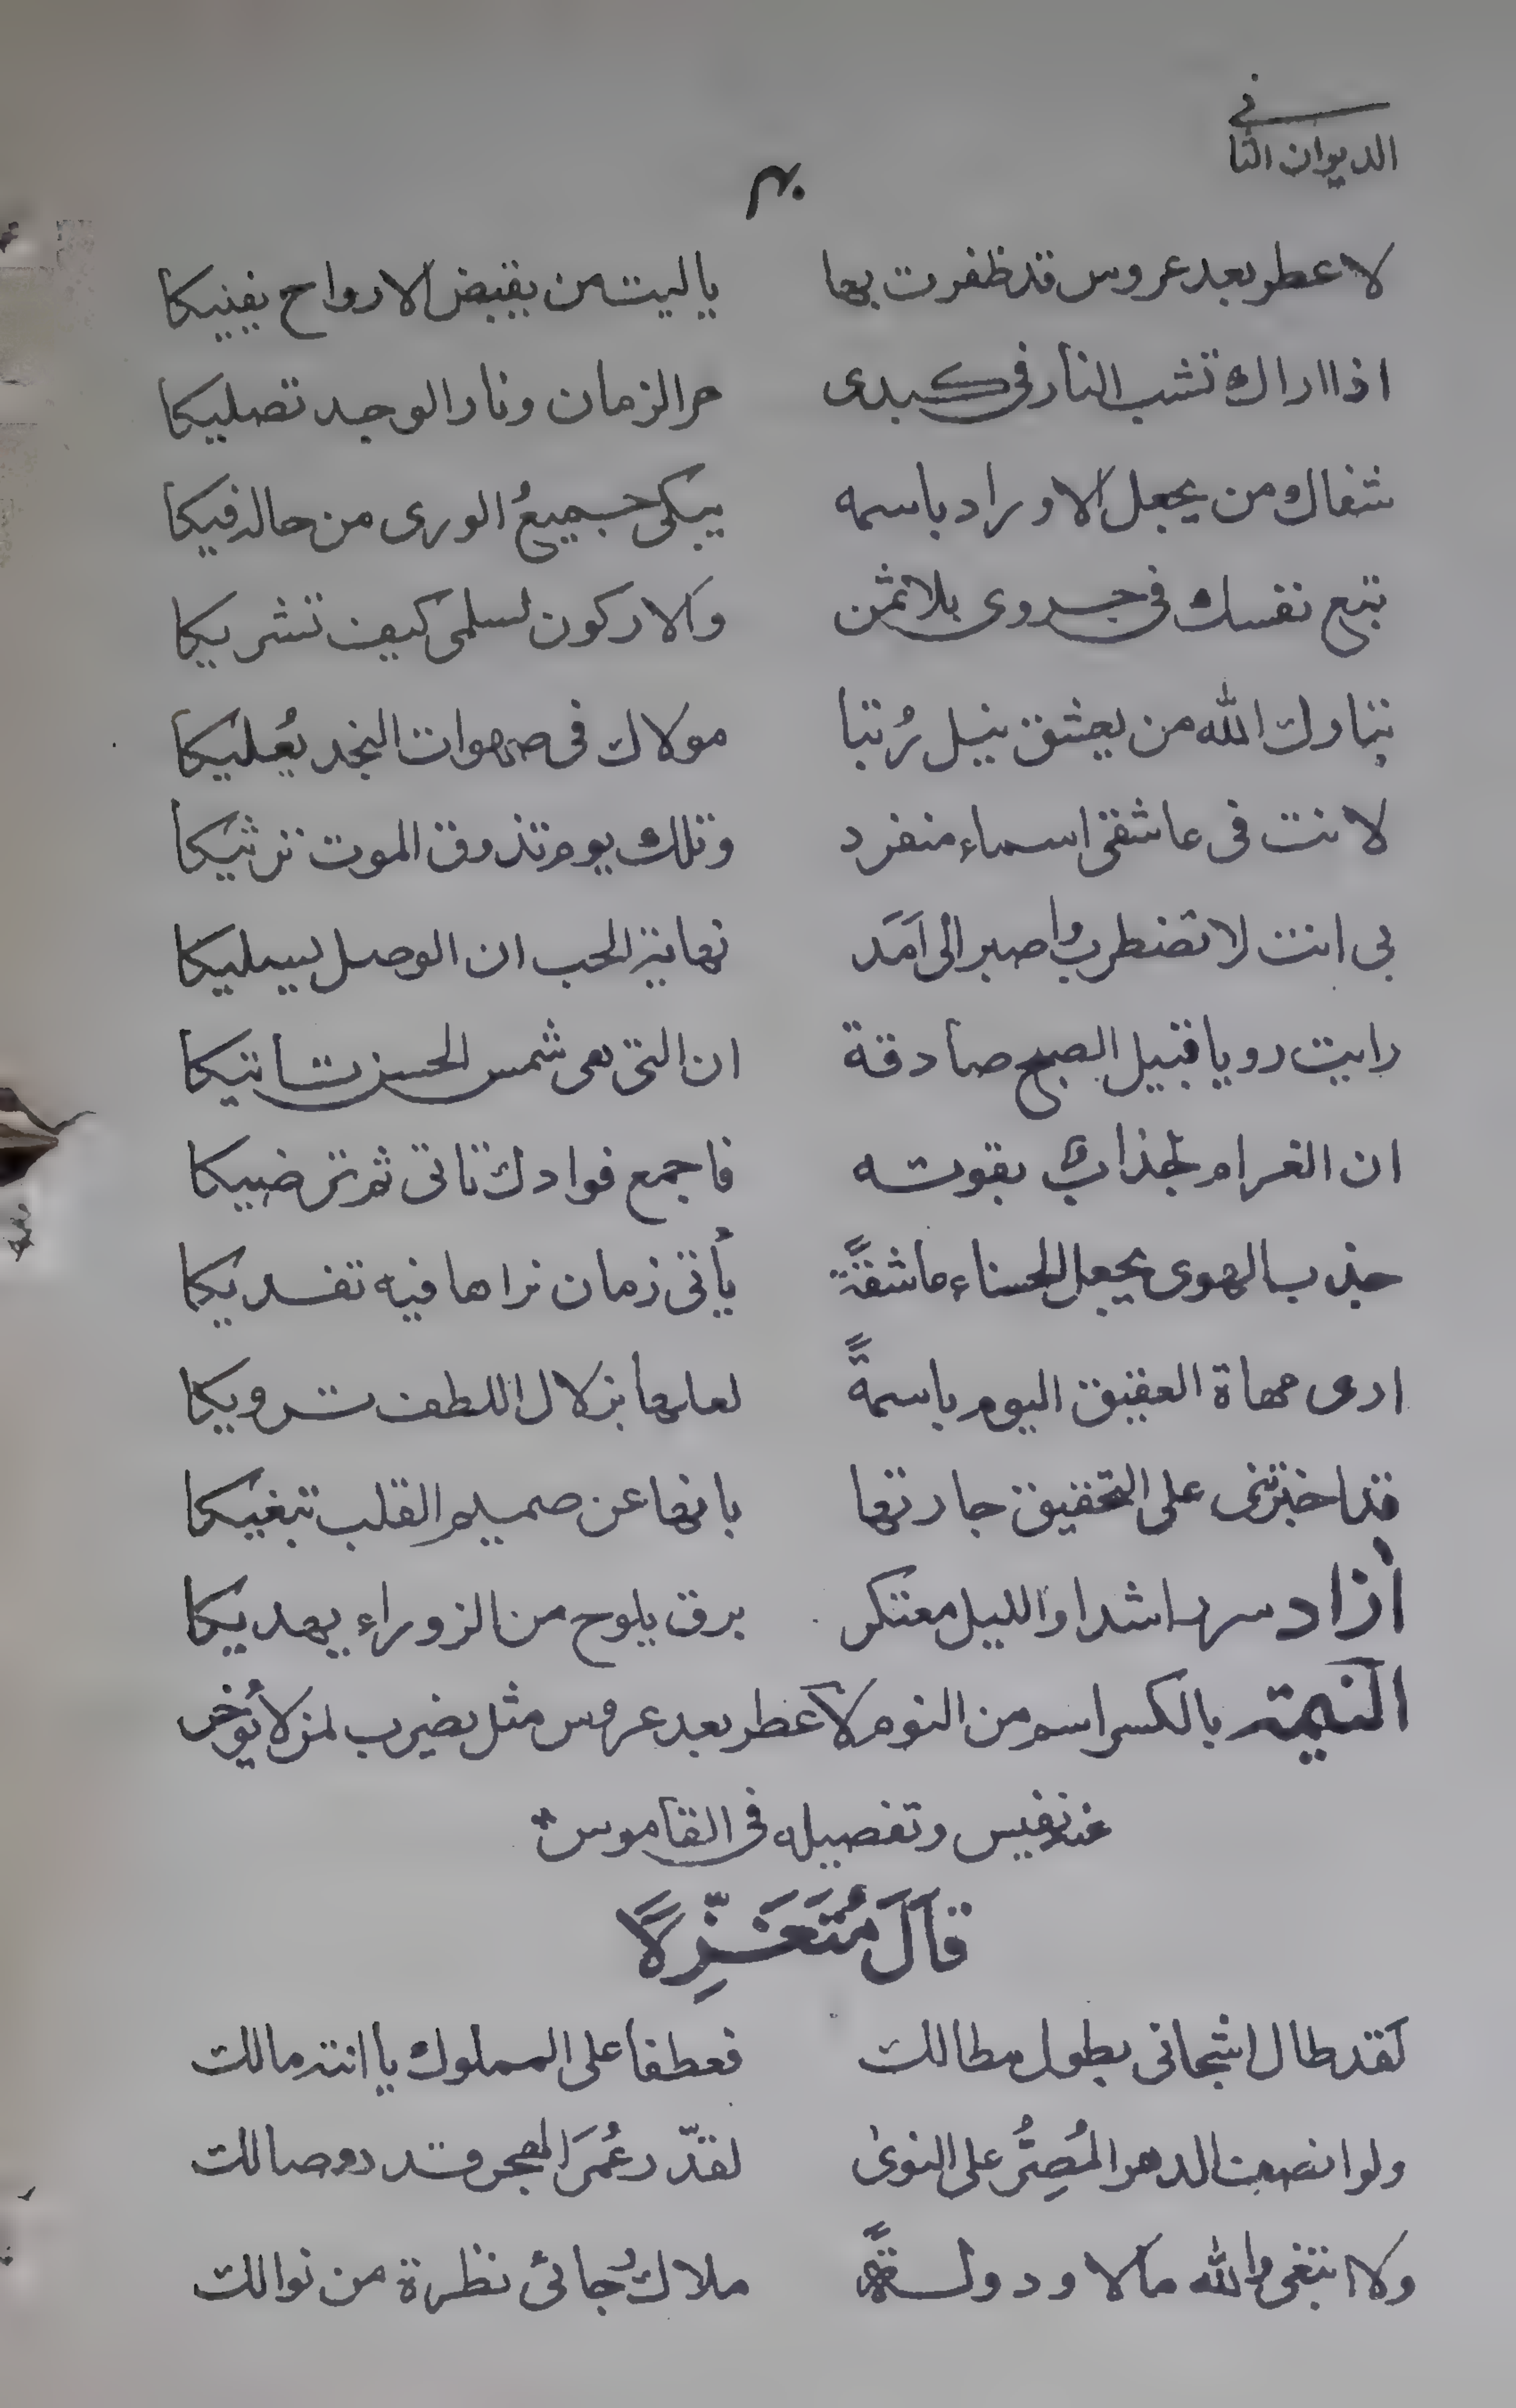 الديوان الثانى
لا عطر بعد عروس قد ظفرت بها ياليت من يقبض الارواح يفنيكا
اذا اراك تشب النار فى كبدى حر الزمان ونار الوجد تصليكا
شفاك من يجعل الاوراد باسمه يبكى جميعُ الورى من حاله فيكا
تبع نفسك فى جدوى بلا ثمن والا ركون لسلمى كيف تشريكا
تبارك الله من يعشق ينل رُتبا مولاك فى صهوات النجد يُعليكا
لانت فى عاشقى اسماء منفرد وتلك يوم تذوق الموت ترثيكا
بى انت لا تضطرب واصبر الى اَمَد نهاية الحب ان الوصل يسليكا
رايت رويا قبيل الصبح صادقة ان التى هى شمس الحسن تاتيكا
ان الغرام لجذاب بقوته فاجمع فوادك تاتى ثم ترضيكا
جذب الهوى يجعل الحسناء عاشقةً يأتى زمان نراها فيه تفديكا
ارى مهاة العقيق اليوم باسمةً لعلها بزلال اللطف ترويكا
قد اخبرتنى على التحقيق جارتها بانها عن صميم القلب تبغيكا
أزاد سر راشدا والليل معتكر برق يلوح من الزوراء يهديكا
النيمة بالكسر اسم من النوم لا عطر بعد عروس مثل يضرب لمن لا يُوخر
عنه نفيس وتفصيله فى القاموس
قَالَ مُتَغَزِّلًا
لَقد طال اشجانى بطول مطالك فعطفا على المملوك يا انت مالك
ولو انصف الدهر المُصِرُّ على النوىٰ لقدّر عُمَرَ الهجر قدر وصالك
ولا ابتغى والله مالا ودولةً ملاكُ رجائى نظرة من نوالك